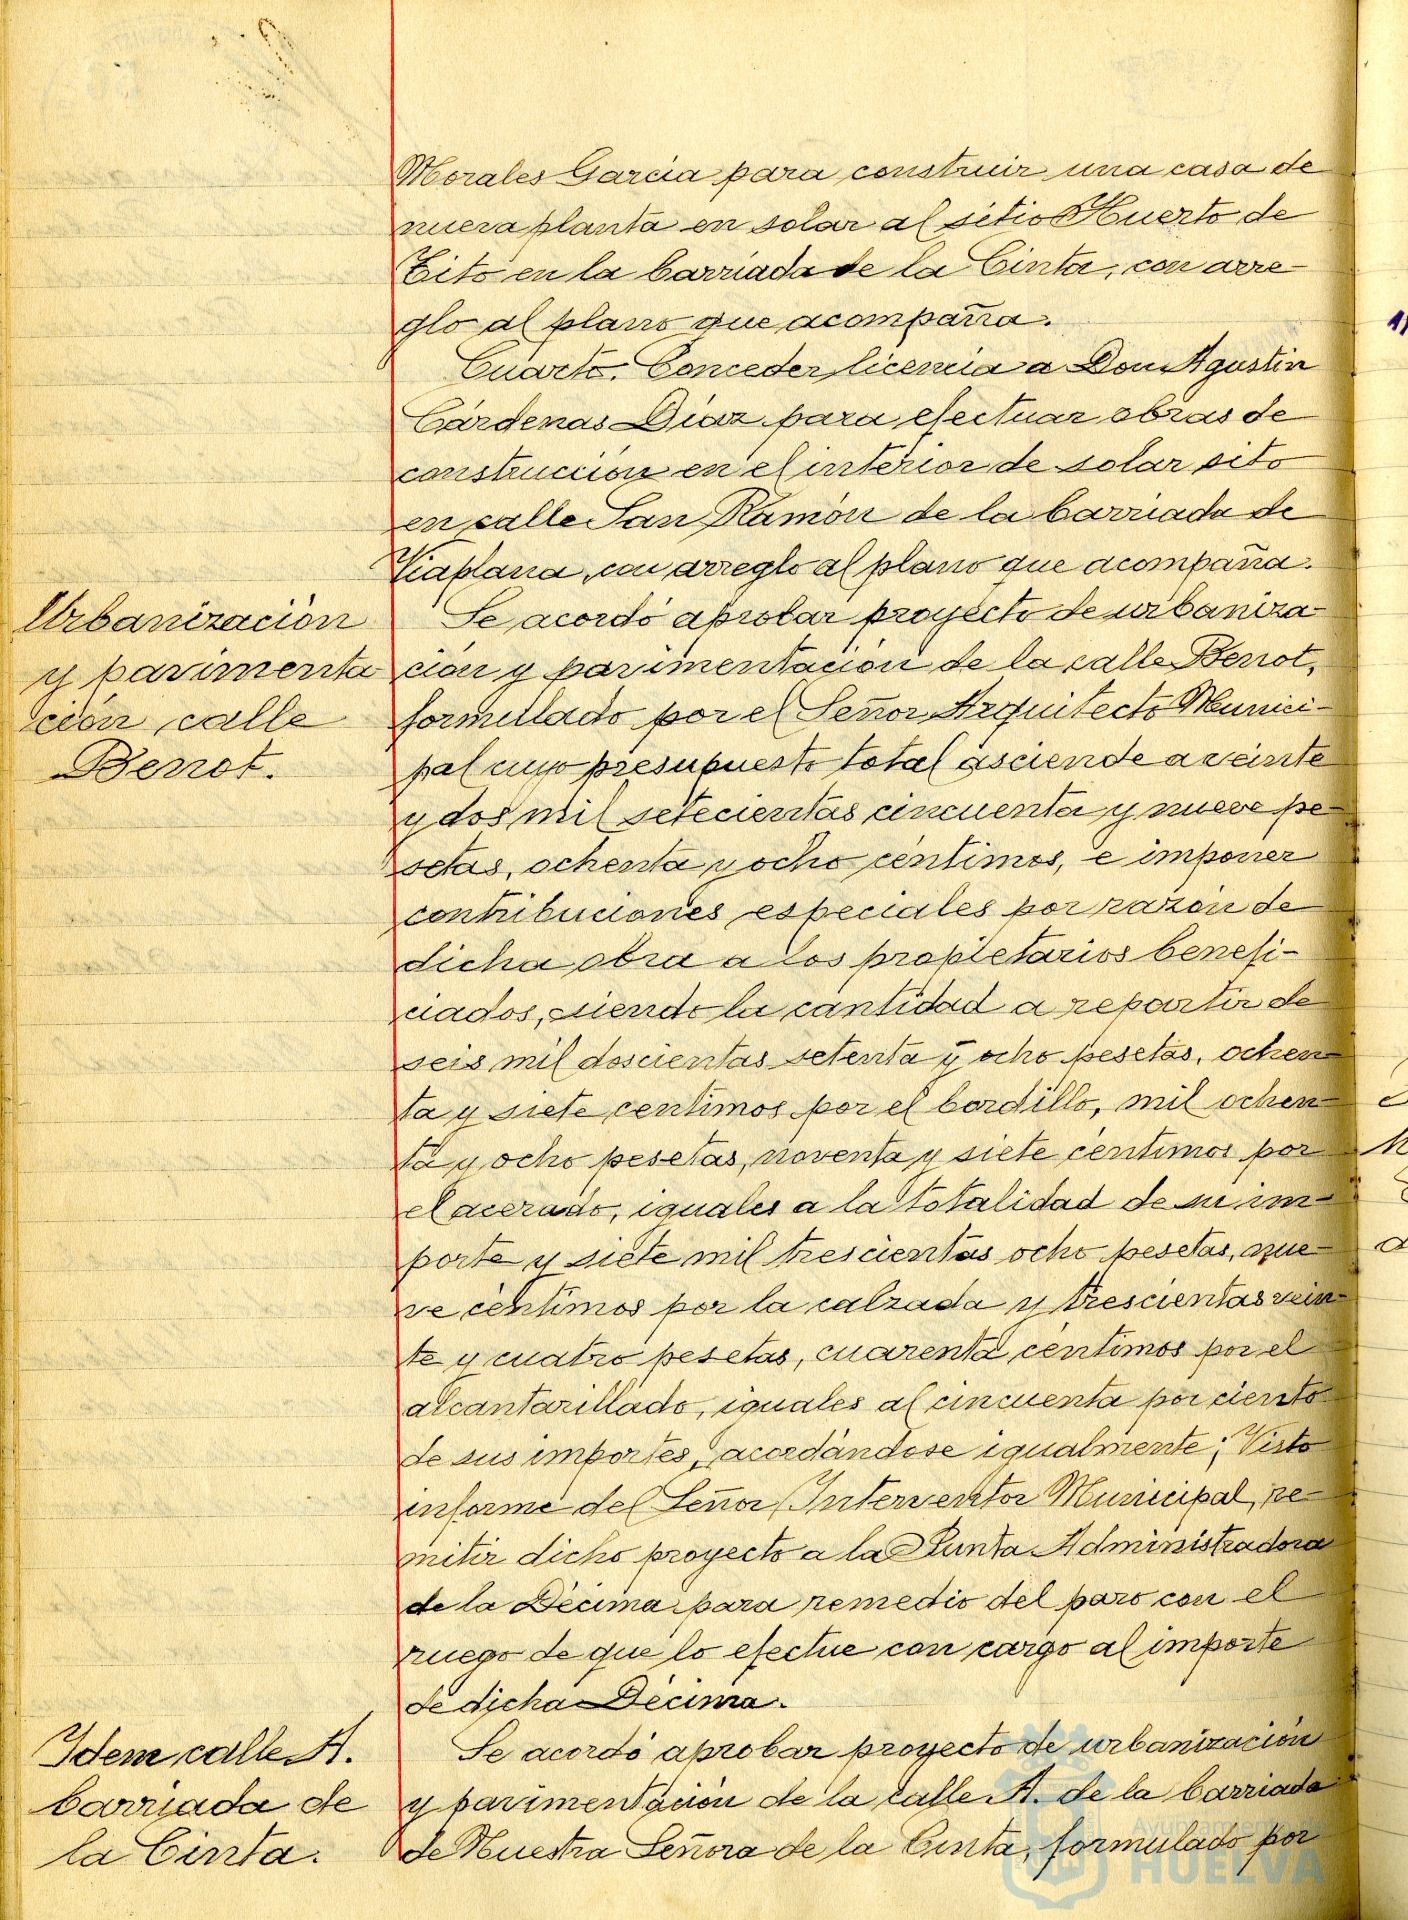 Morales García para construir una casa de
nueva planta en solar al sitio Huerto de
Tito en la barriada de la Cinta, con arre-
glo al plano que acompaña.
Cuarto. Conceder licencia a Don Agustín
Cárdenas Díaz para efectuar obras de
construcción en el interior de solar sito
en calle San Ramón de la barriada de
Viaplana, con arreglo al plano que acompaña.
Urbanización
y pavimenta
ción calle
Benot.
Se acordó aprobar proyecto de urbaniza-
ción y pavimentación de la calle Benot,
formulado por el Señor Arquitecto Munici-
pal cuyo presupuesto total asciende a veinte
y dos mil setecientas cincuenta y nueve pe-
setas, ochenta y ocho céntimos, e imponer
contribuciones especiales por razón de
dicha obra a los propietarios benefi-
ciados, siendo la cantidad a repartir de
seis mil doscientas setenta y ocho pesetas, ochen-
ta y siete centimos por el bordillo, mil ochen-
ta y ocho pesetas, noventa y siete céntimos por
el acerado, iguales a la totalidad de su im-
porte y siete mil trescientas ocho pesetas, nue-
ve céntimos por la calzada y trescientas vein-
te y cuatro pesetas, cuarenta céntimos por el
alcantarillado, iguales al cincuenta por ciento
de sus importes, acordándose igualmente; Visto
informe del Señor Interventor Municipal, re-
mitir dicho proyecto a la Junta Administradora
de la Décima para remedio del paro con el
ruego de que lo efectue con cargo al importe
de dicha Décima.
Idem calle A.
barriada de
la Cinta.
Se acordó aprobar proyecto de urbanización
y pavimentación de la calle A. de la barriada
de Nuestra Señora de la Cinta, formulado por
Ayuntamiento de
HUELVA